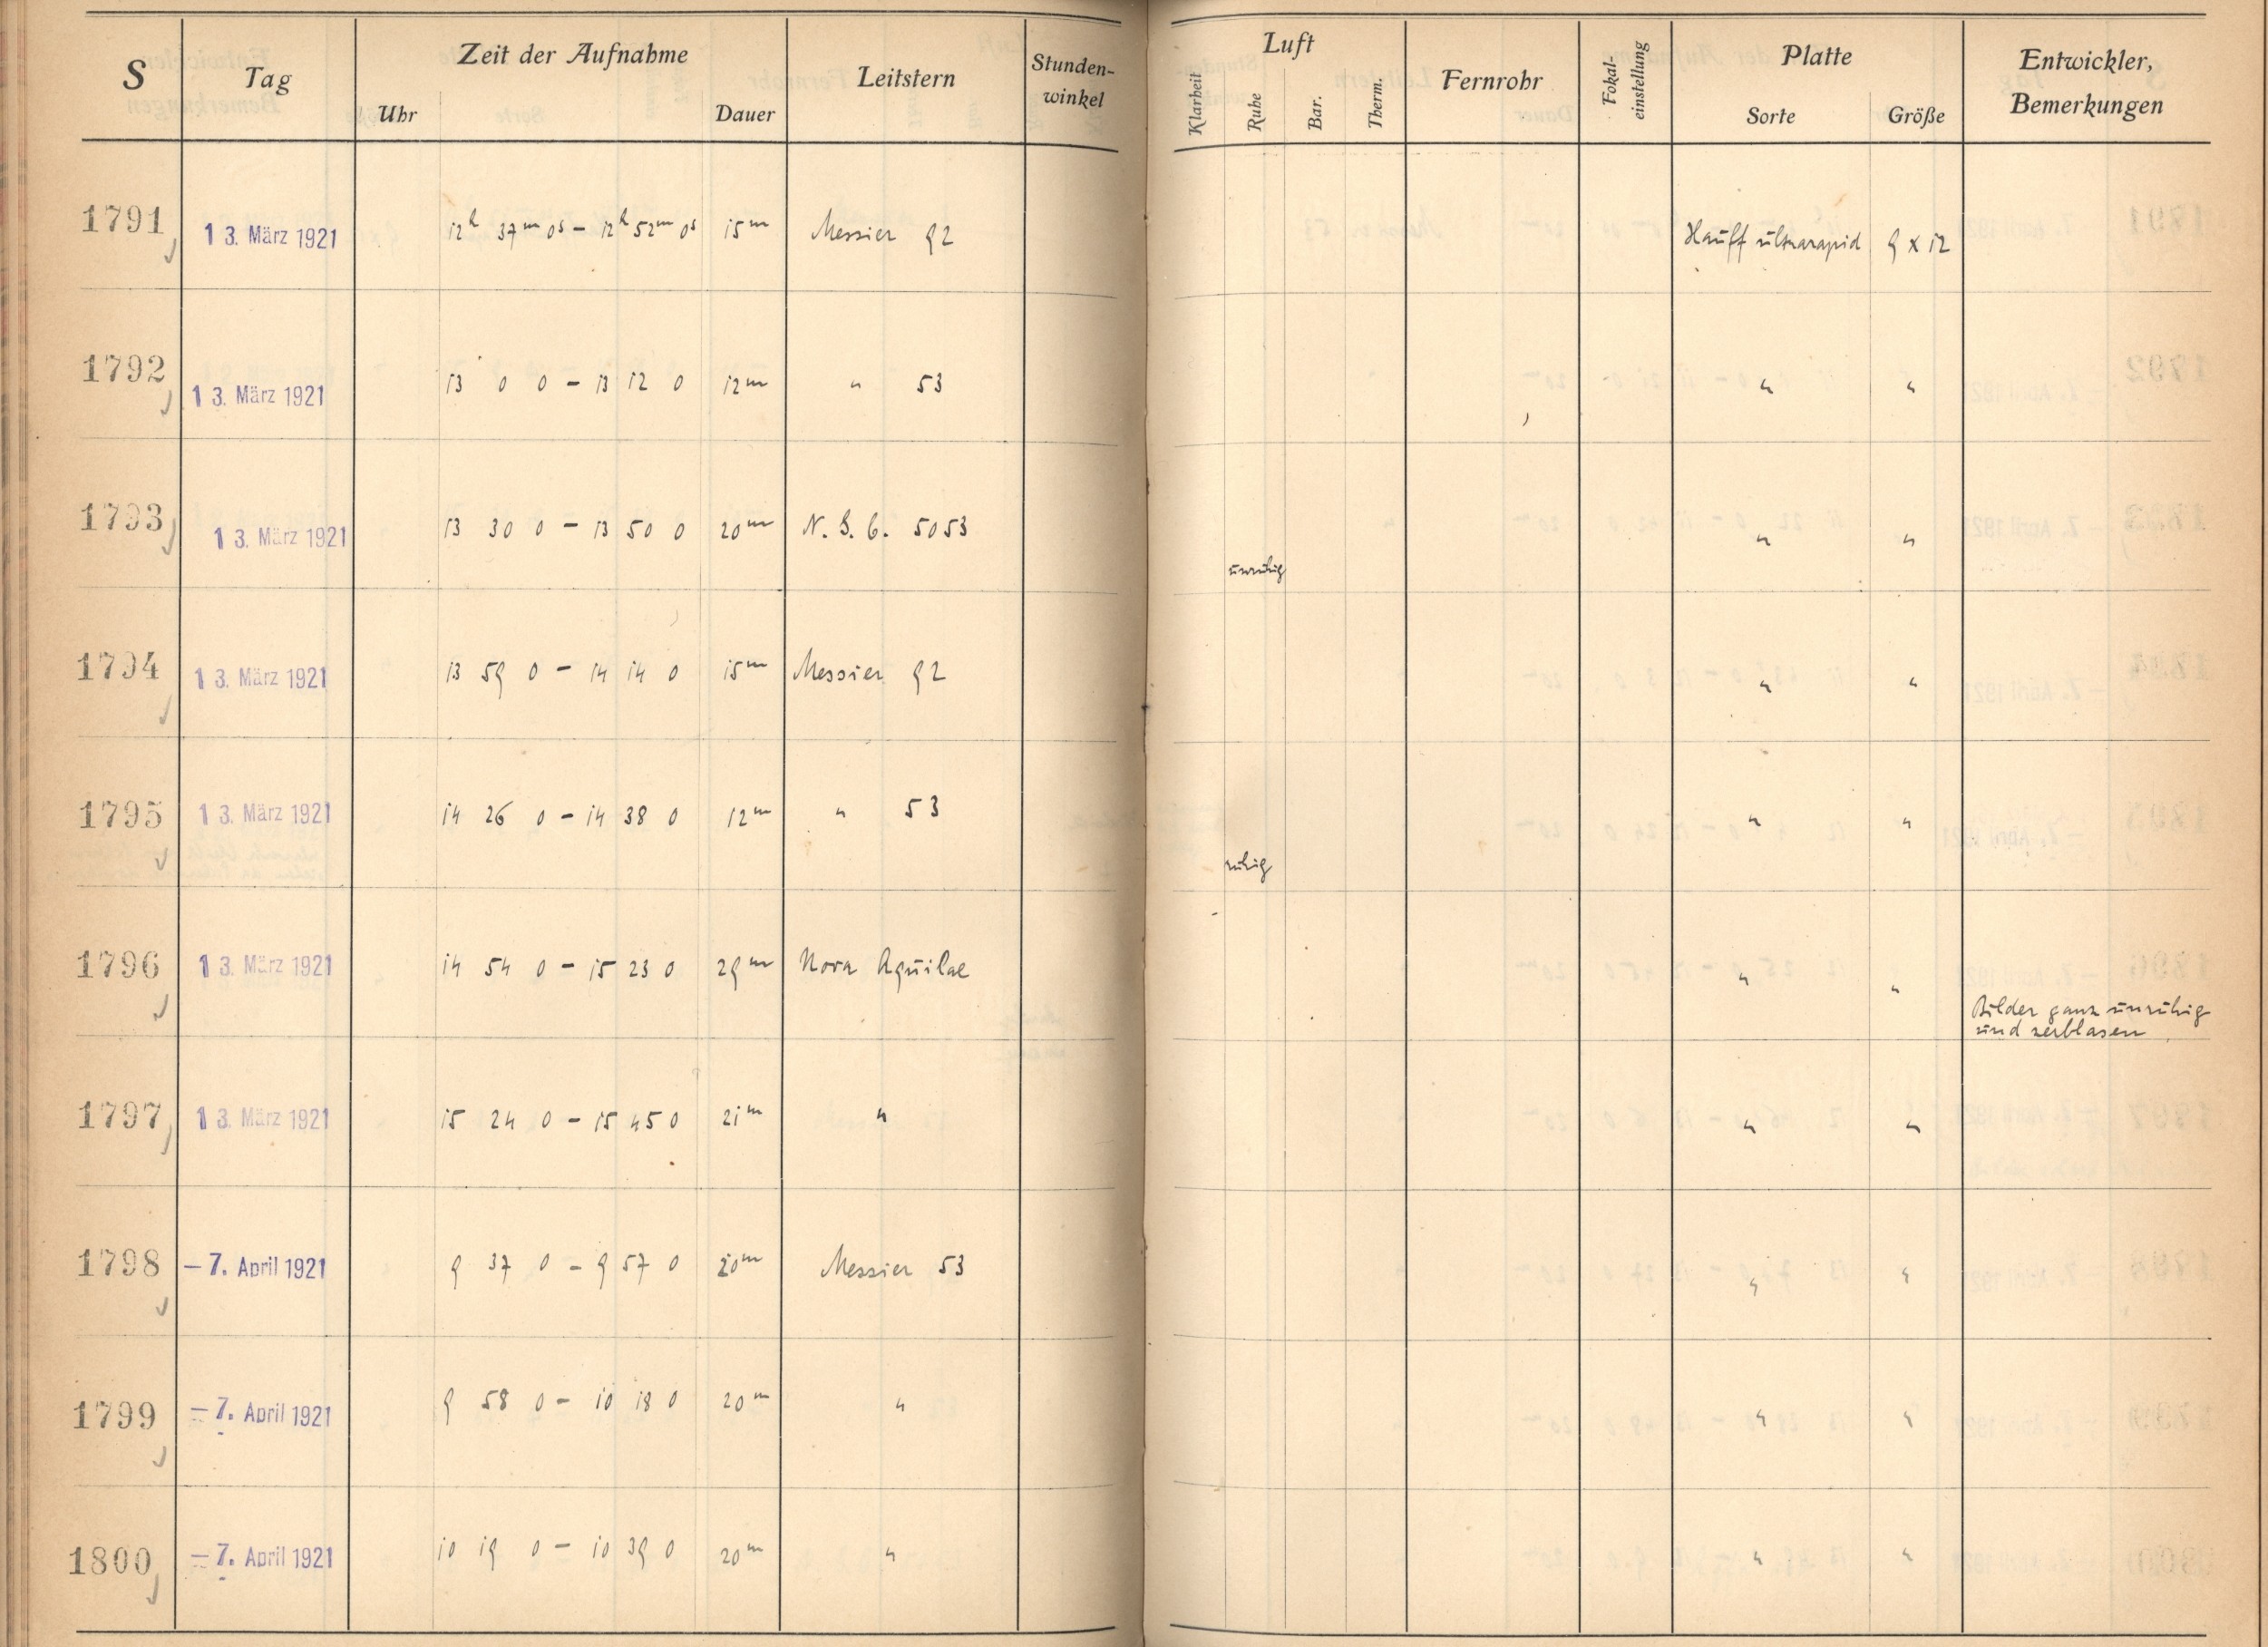 S Tag Zeit der Aufnahme Leitstern Stunden-winkel Luft Fernrohr Fokal-einstellung Platte Entwickler, Bemerkungen
Uhr Dauer Klarheit Ruhe Bar. Therm. Sorte Größe
1791 13. März 1921 12h 37m 0s – 12h 52m 0s 15m Messier 92 Hauff ultrarapid 9 x 12
1792 13. März 1921 13 0 0 – 13 12 0 12m " 53 " "
1793 13. März 1921 13 30 0 – 13 50 0 20m N. G. C. 5053 unruhig " "
1794 13. März 1921 13 59 0 – 14 14 0 15m Messier 92 " "
1795 13. März 1921 14 26 0 – 14 38 0 12m " 53 ruhig " "
1796 13. März 1921 14 54 0 – 15 23 0 29m Nova Aquilae " "
Bilder ganz unruhig
und zerblasen
1797 13. März 1921 15 24 0 – 15 45 0 21m " " "
1798 – 7. April 1921 9 37 0 – 9 57 0 20m Messier 53 " "
1799 – 7. April 1921 9 58 0 – 10 18 0 20m " " "
1800 – 7. April 1921 10 19 0 – 10 39 0 20m " " "